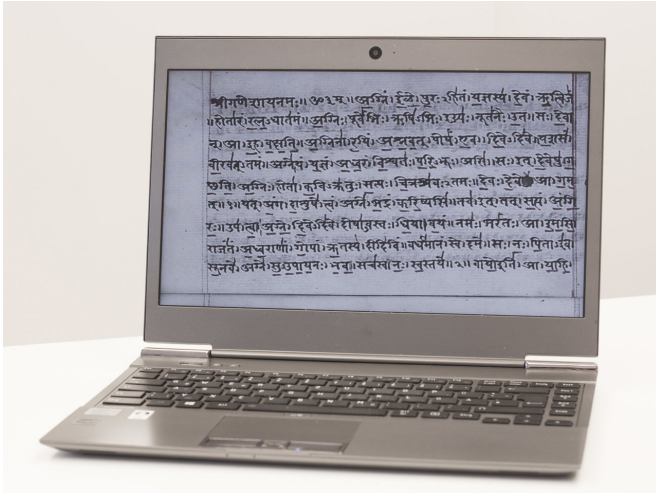 श्रीगणेशायनमः॥ॐ३म्॥अग्निं।ईळे।पुरःऽहितं।यज्ञस्य।देवं।ऋत्विजं
॥होतारं।रत्नऽधातमं॥अग्निः।पूर्वेभिः।ऋषिऽभिः।ईड्यः।नूतनैः।उत॥सः।देवा
न्।आ।इह।वक्षति॥अग्निना।रयिं।अश्नवत्।पोषं।एव।दिवेऽदिवे॥यशसं
वीरवत्ऽतमं॥अग्ने।यं।यज्ञं।अध्वरं।विश्वतः।परिऽभूः।असि॥सः।इत्।देवेषु।ग
च्छति॥अग्निः।होता।कविऽक्रतुः।सत्यः।चित्रश्रवःऽतमः॥देवः।देवेभिः।आ।गम
त्॥१॥यत्।अंग।दाशुषे।त्वं।अग्ने।भद्रं।करिष्यसि॥तव।इत्।तत्।सत्यं।अंगि
रः॥उप।त्वा।अग्ने।दिवेऽदिवे।दोषाऽवस्तः।धिया।वयं॥नमः।भरंतः।आ।इमसि॥
राजंतं।अध्वराणां।गोपां।ऋतस्य।दीदिविं॥वर्धमानं।स्वे।दमे॥सः।नः।पिताऽइव
सूनवे।अग्ने।सुऽउपायनः।भव॥सचस्व।नः।स्वस्तये॥२॥वायोइति।आ।याहि।